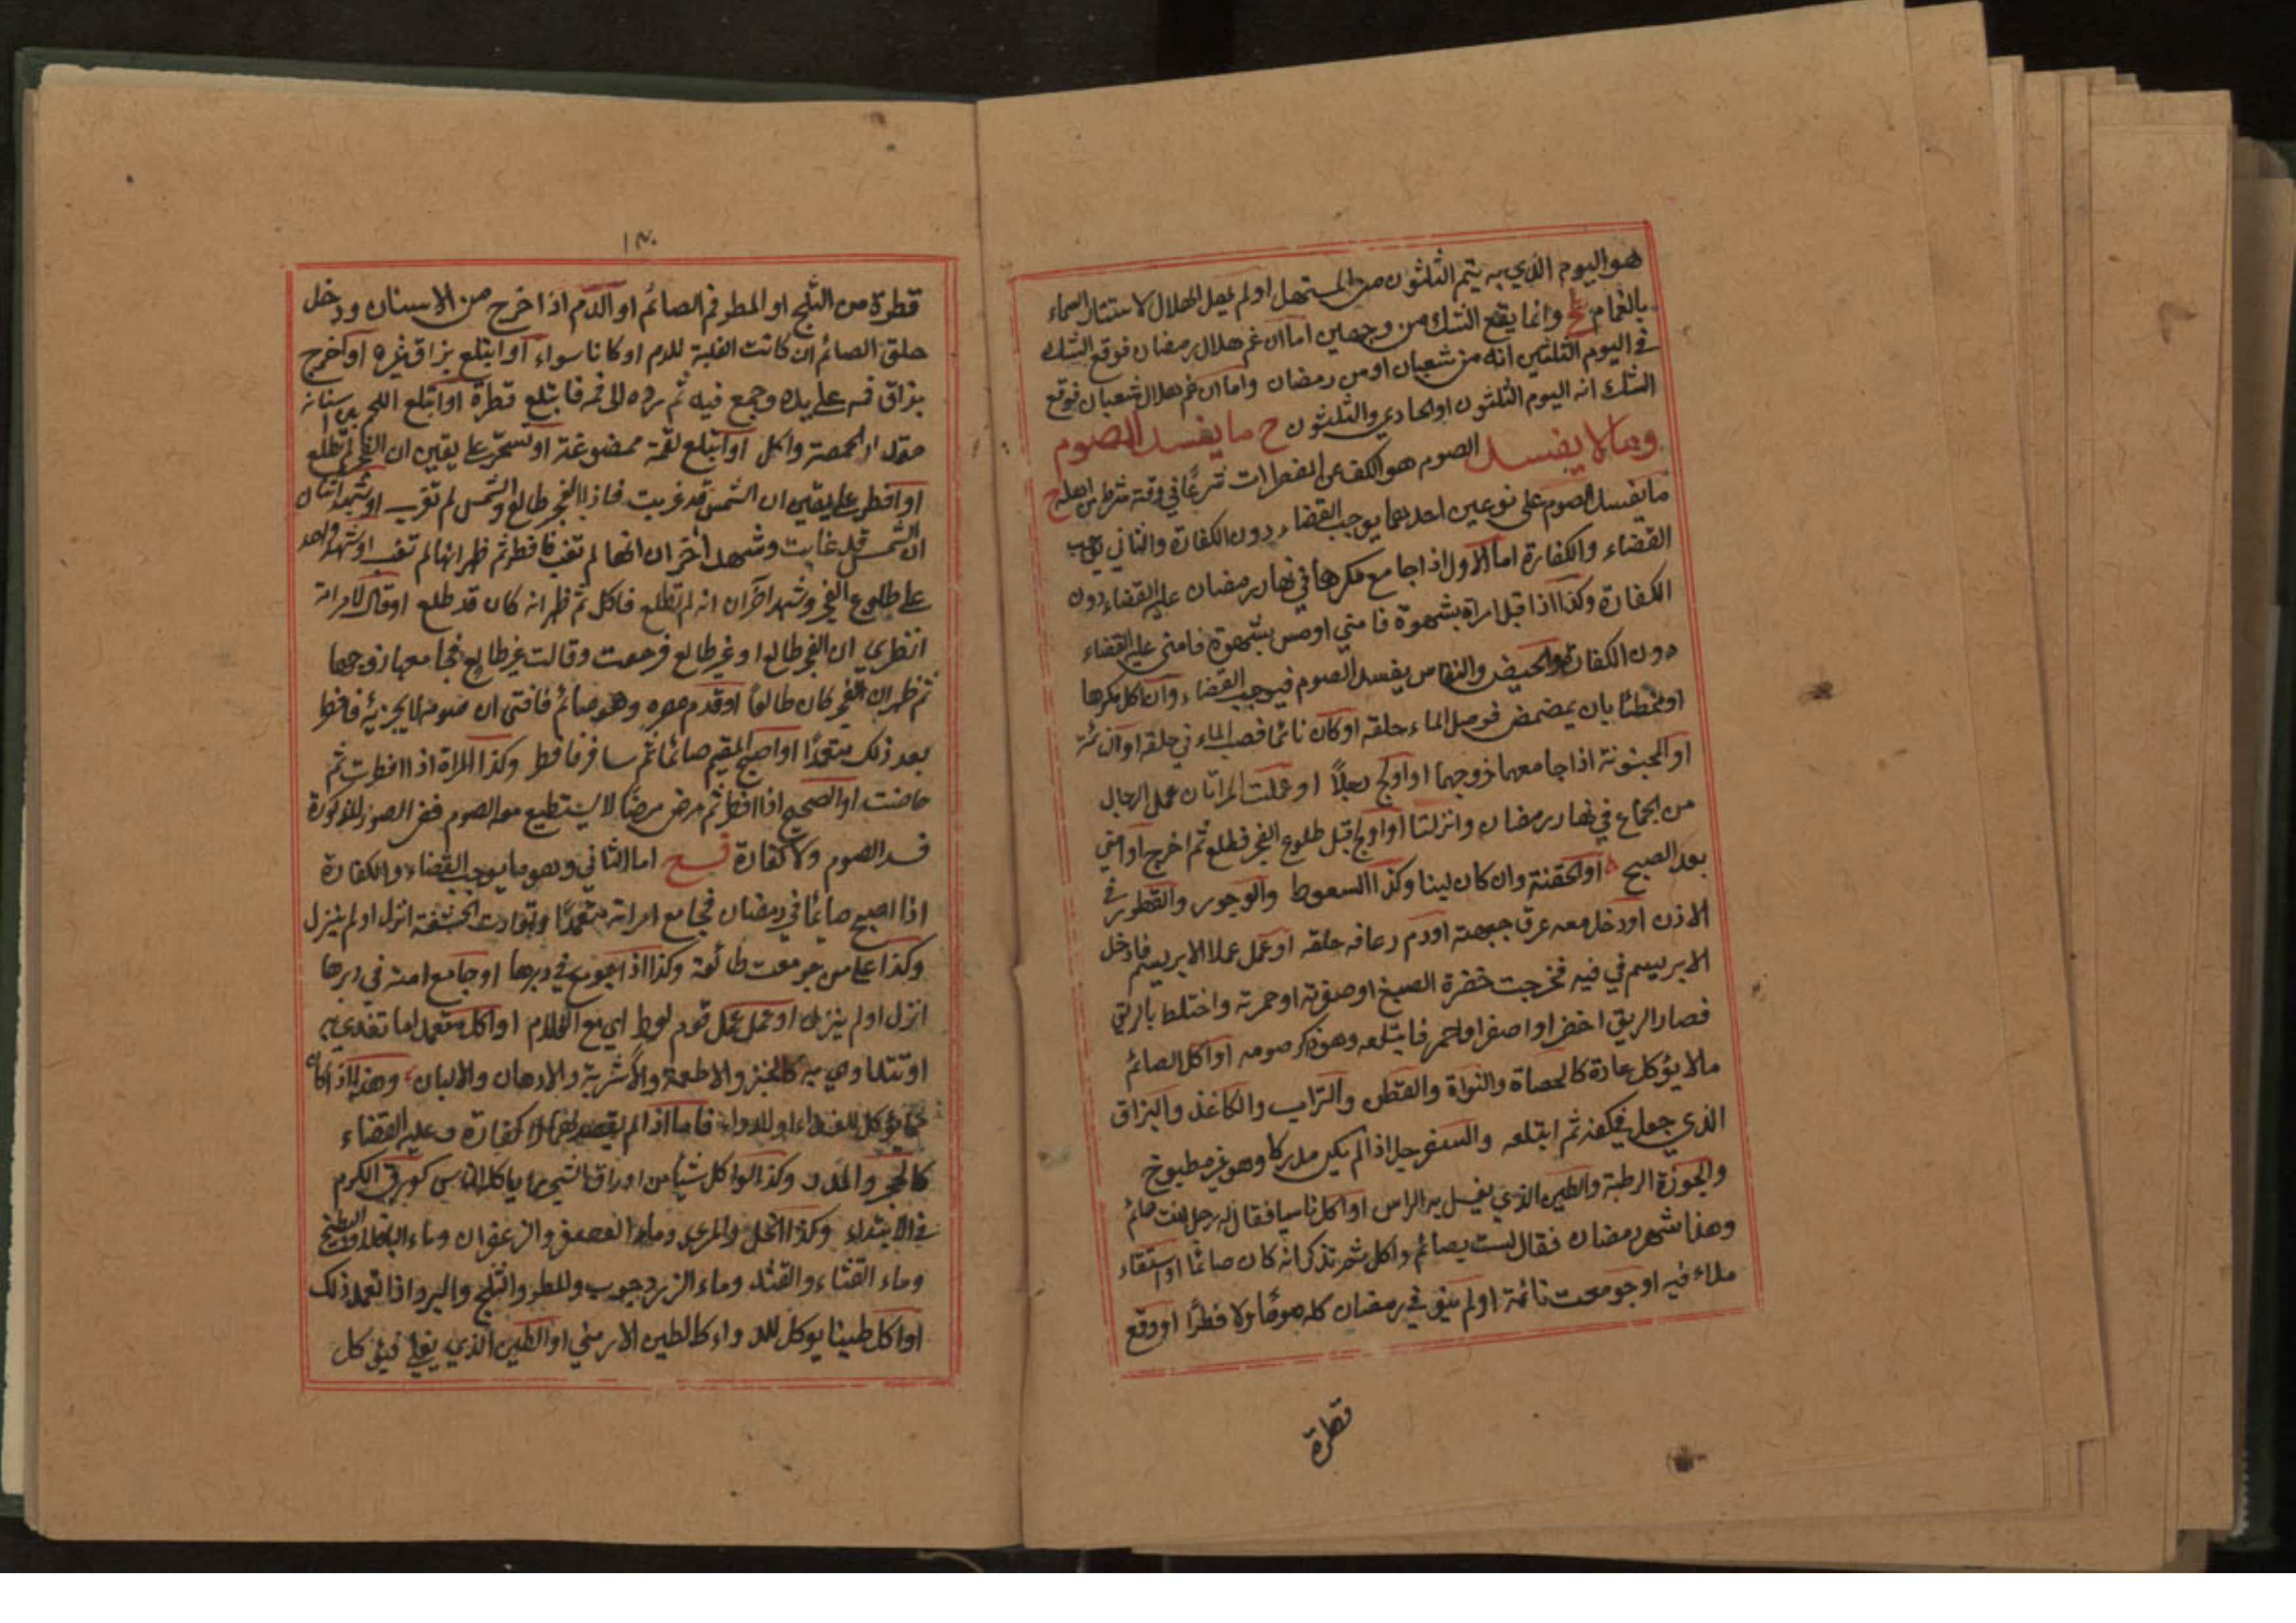 هو اليوم الذي به يتم الثلثون من المستهل او لم يهل الهلال لاستتار السماء
بالغمام وانما يقع الشك من وجهين اما ان غم هلال رمضان فوقع الشك
في اليوم الثلثين انه من شعبان او من رمضان واما ان غم هلال شعبان فوقع
الشك انه اليوم الثلثون او الحادي والثلثون ح ما يفسد الصوم
وما لا يفسد الصوم هو الكف عن المفطرات شرعًا في وقته بشرطه من اهله ح
ما يفسد الصوم على نوعين احدهما يوجب القضاء دون الكفارة والثاني يوجب
القضاء والكفارة اما الاول اذا جامع مكرها في نهار رمضان عليه القضاء دون
الكفارة وكذا اذا قبل امراة بشهوة فامني او مس بشهوة فامنى عليه القضاء
دون الكفارة والحيض والنفاس يفسد الصوم فيوجب القضاء وان اكل مكرها
او مخطئا بان يمضمض فوصل الماء حلقه او كان نائما فصب الماء في حلقه او النائمة
او المجنونة اذا جامعها زوجها او اولج رجلاً او عملت المراتان عمل الرجال
من الجماع في نهار رمضان وانزلتا او اولج قبل طلوع الفجر فطلع ثم اخرج او امني
بعد الصبح او الحقنة وان كان لبنا وكذا السعوط والوجور والقطور في
الاذن او دخل معه عرق جبهته او دم رعافه حلقه او عمل عملا الابريسم فادخل
الابريسم في فيه فخرجت خضرة الصبغ او صفرته او حمرته واختلط بالريق
فصار الريق اخضر او اصفر او احمر فابتلعه وهو ذكر صومه او اكل الصائم
ما لا يؤكل عادة كالحصاة والنواة والقطن والتراب والكاغذ والبزاق
الذي جعل في كفه ثم ابتلعه والسفرجل اذا لم يكن مدركا وهو غير مطبوخ
والجوزة الرطبة والطين الذي يغسل به الراس او اكل ناسيا فقال له رجل انت صائم
وهذا شهر رمضان فقال لست بصائم واكل ثم تذكر انه كان صائما او استقاء
ملاء فيه او جومعت نائمة او لم ينو في رمضان كله صومًا ولا فطرًا او وقع
قطرة
١٣٠
قطرة من الثلج او المطر فم الصائم او الدم اذا خرج من الاسنان ودخل
حلق الصائم ان كانت الغلبة للدم او كانا سواء او ابتلع بزاق غيره او اخرج
بزاق فمه على يده وجمع فيه ثم رده الى فمه فابتلع قطرة او ابتلع اللحم بين اسنانه
مقدار الحمصة واكل او ابتلع لقمة ممضوغة او تسحر على يقين ان الفجر لم يطلع
او افطر على يقين ان الشمس قد غربت فاذا الفجر طالع والشمس لم تغرب او شهد اثنان
ان الشمس قد غابت وشهد اخران انها لم تغب فافطر ثم ظهر انها لم تغب او شهد واحد
على طلوع الفجر وشهد اخران انه لم يطلع فاكل ثم ظهر انه كان قد طلع او قال لامراته
انظري ان الفجر طالع او غير طالع فرجعت وقالت غير طالع فجامعها زوجها
ثم ظهر ان الفجر كان طالعًا او قدم مصره وهو صائم فافتى ان صومه لا يجزيه فافطر
بعد ذلك متعمدًا او اصبح المقيم صائما ثم سافر فافطر وكذا المراة اذا افطرت ثم
حاضت او الصحيح اذا افطر ثم مرض مرضًا لا يستطيع معه الصوم ففي الصور المذكورة
فسد الصوم ولا كفارة اما الثاني وهو ما يوجب القضاء والكفارة
اذا اصبح صائما في رمضان فجامع امراته متعمدًا وتوارت الحشفة انزل او لم ينزل
وكذا على من جومعت طائعة وكذا اذا جومع في دبرها او جامع امته في دبرها
انزل او لم ينزل او عمل عمل قوم لوط اي مع الغلام او اكل متعمدا ما تغدي به
او تتداوي به كالخبز والاطعمة والاشربة والادهان والالبان وهذا اذا اكله
مما يؤكل للغذاء او للدواء فاما اذا لم يقصد لهما فلا كفارة وعليه القضاء
كالحجر والمدر وكذا لو اكل شيأ من اوراق الشجر ما ياكله الناس كورق الكرم
في الابتداء وكذا الخل والمري وماء العصفر والزعفران وماء الباقلا والبطيخ
وماء القثاء والقثد وماء الزرجون والمطر والثلج والبرد اذا تعمد ذلك
او اكل طينا يوكل للدواء كالطين الارمني او الطين الذي يقلى فيؤكل